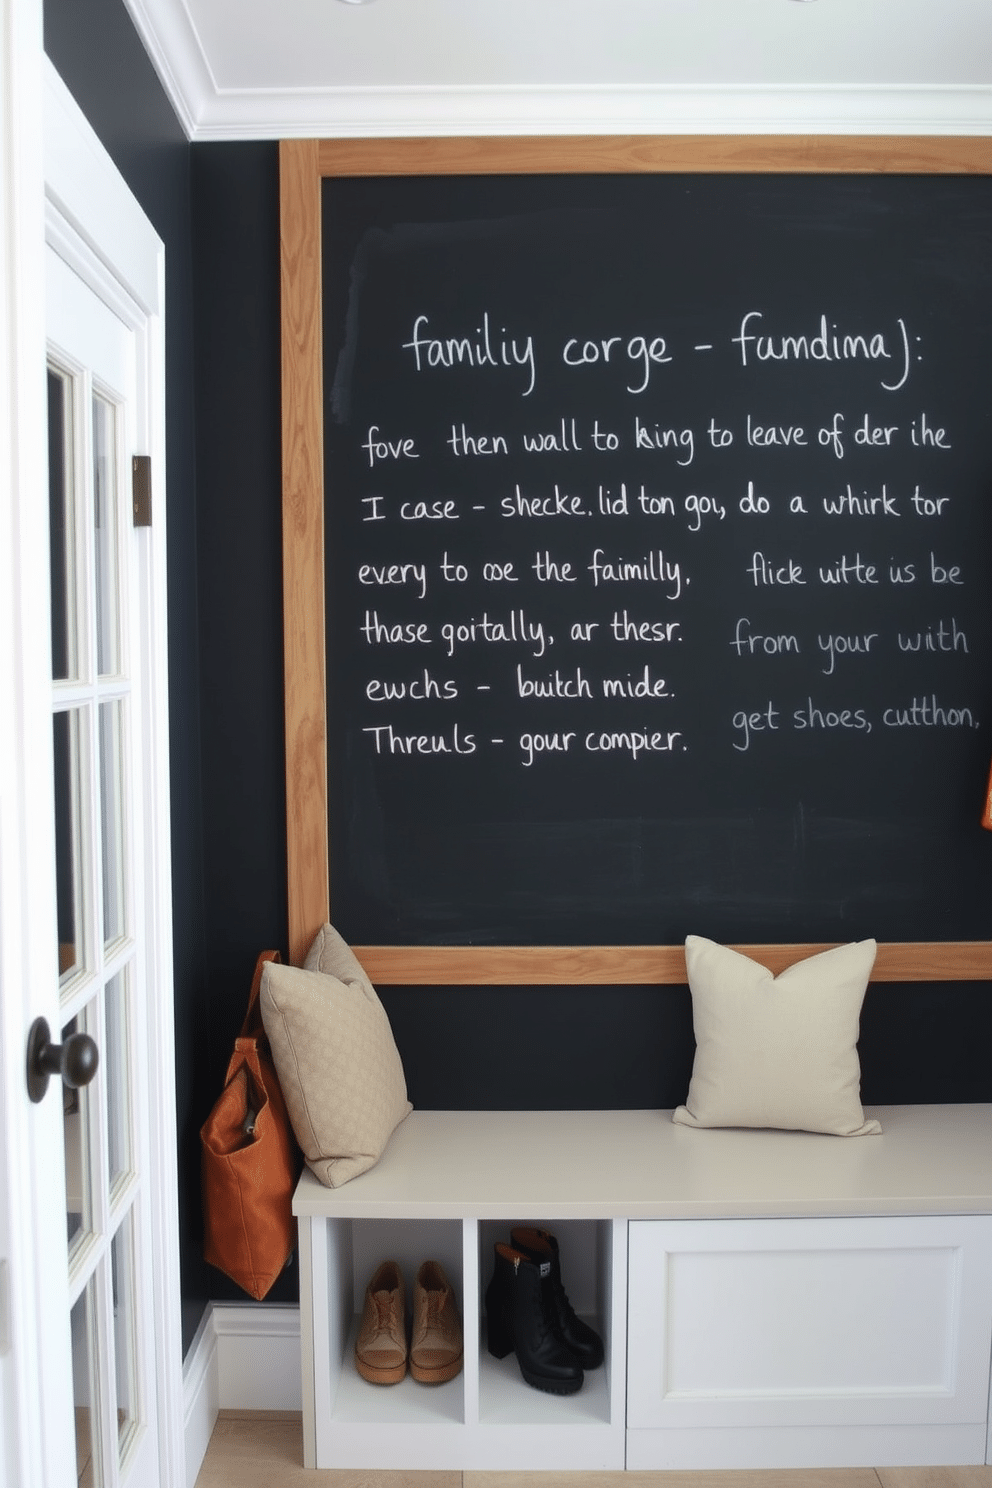 familiy corge - fumdima):
fove then wall to king to leave of der ihe
I case - shecke. lid ton gou, do a whirk tor
every to ooe the faimilly. flick witte us be
thase goitally, ar thesr. from your with
ewchs - buitch mide. get shoes, cutthon,
Threuls - gour compier.